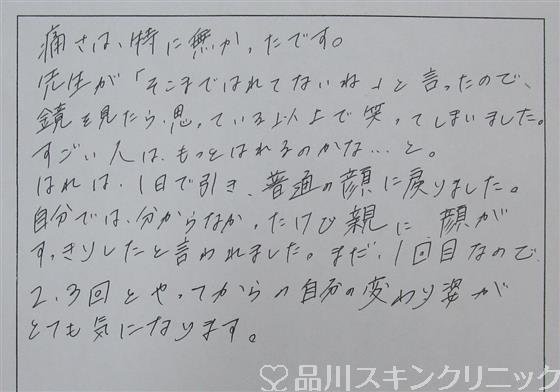 痛さは、特に無かったです。
先生が「そこまではれてないね」と言ったので、
鏡を見たら、思っている以上で笑ってしまいました。
すごい人は、もっとはれるのかな…と。
はれは、1日で引き、普通の顔に戻りました。
自分では、分からなかったけど親に顔が
すっきりしたと言われました。まだ、1回目なので、
2、3回とやってからの自分の変わり姿が
とても気になります。
品川スキンクリニック